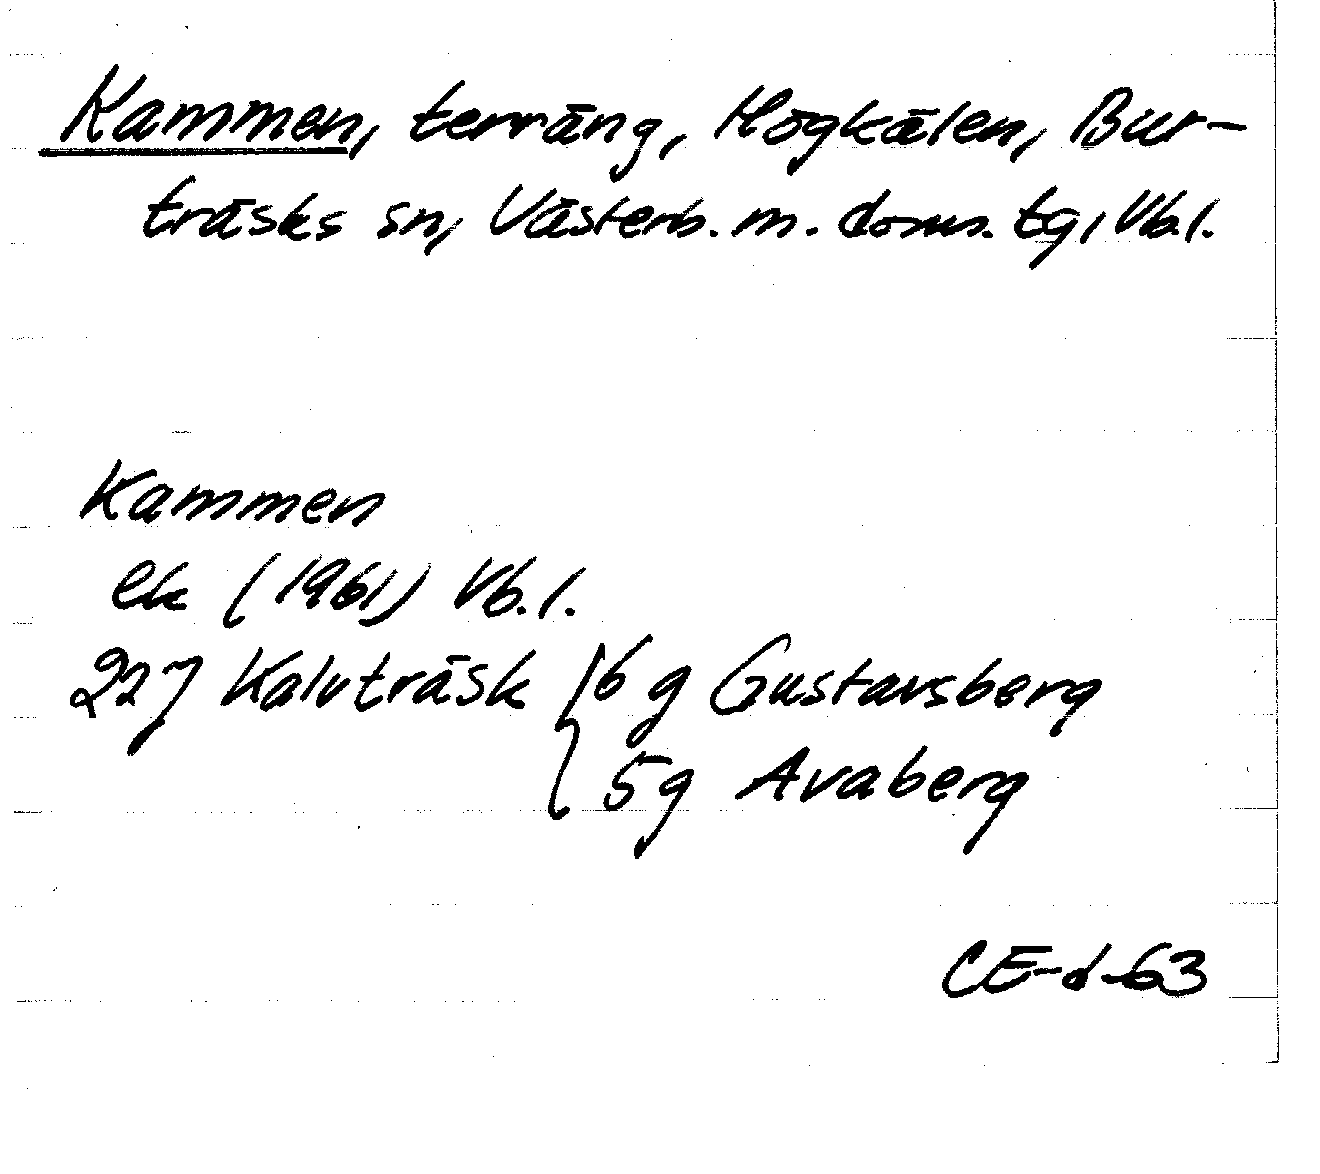 Kammen, terräng, Högkälen, Bur-
träsks sn, Västerb. m. doms. tg, Vb.l.
Kammen
ek (1961) Vb.l.
227 Kalvträsk { 6 g Gustavsberg
5 g Avaberg
CE-d-63